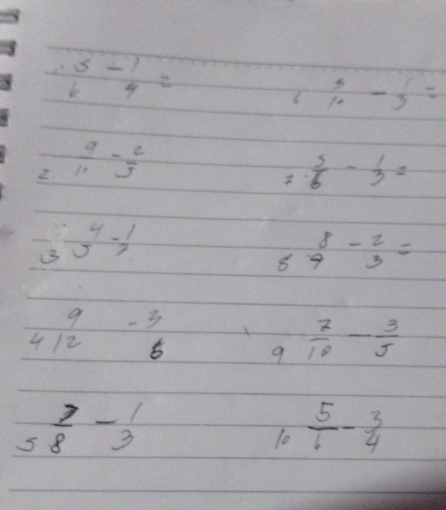 . 5/6 - 1/9 =
6 3/10 - 1/3 =
2 9/10 - 2/5
7 . 5/6 - 1/3 =
3 4/5 - 1/2
8 8/9 - 2/3 =
4 9/12 - 3/6
9 7/10 - 3/5
5 7/8 - 1/3
10 5/6 - 3/4